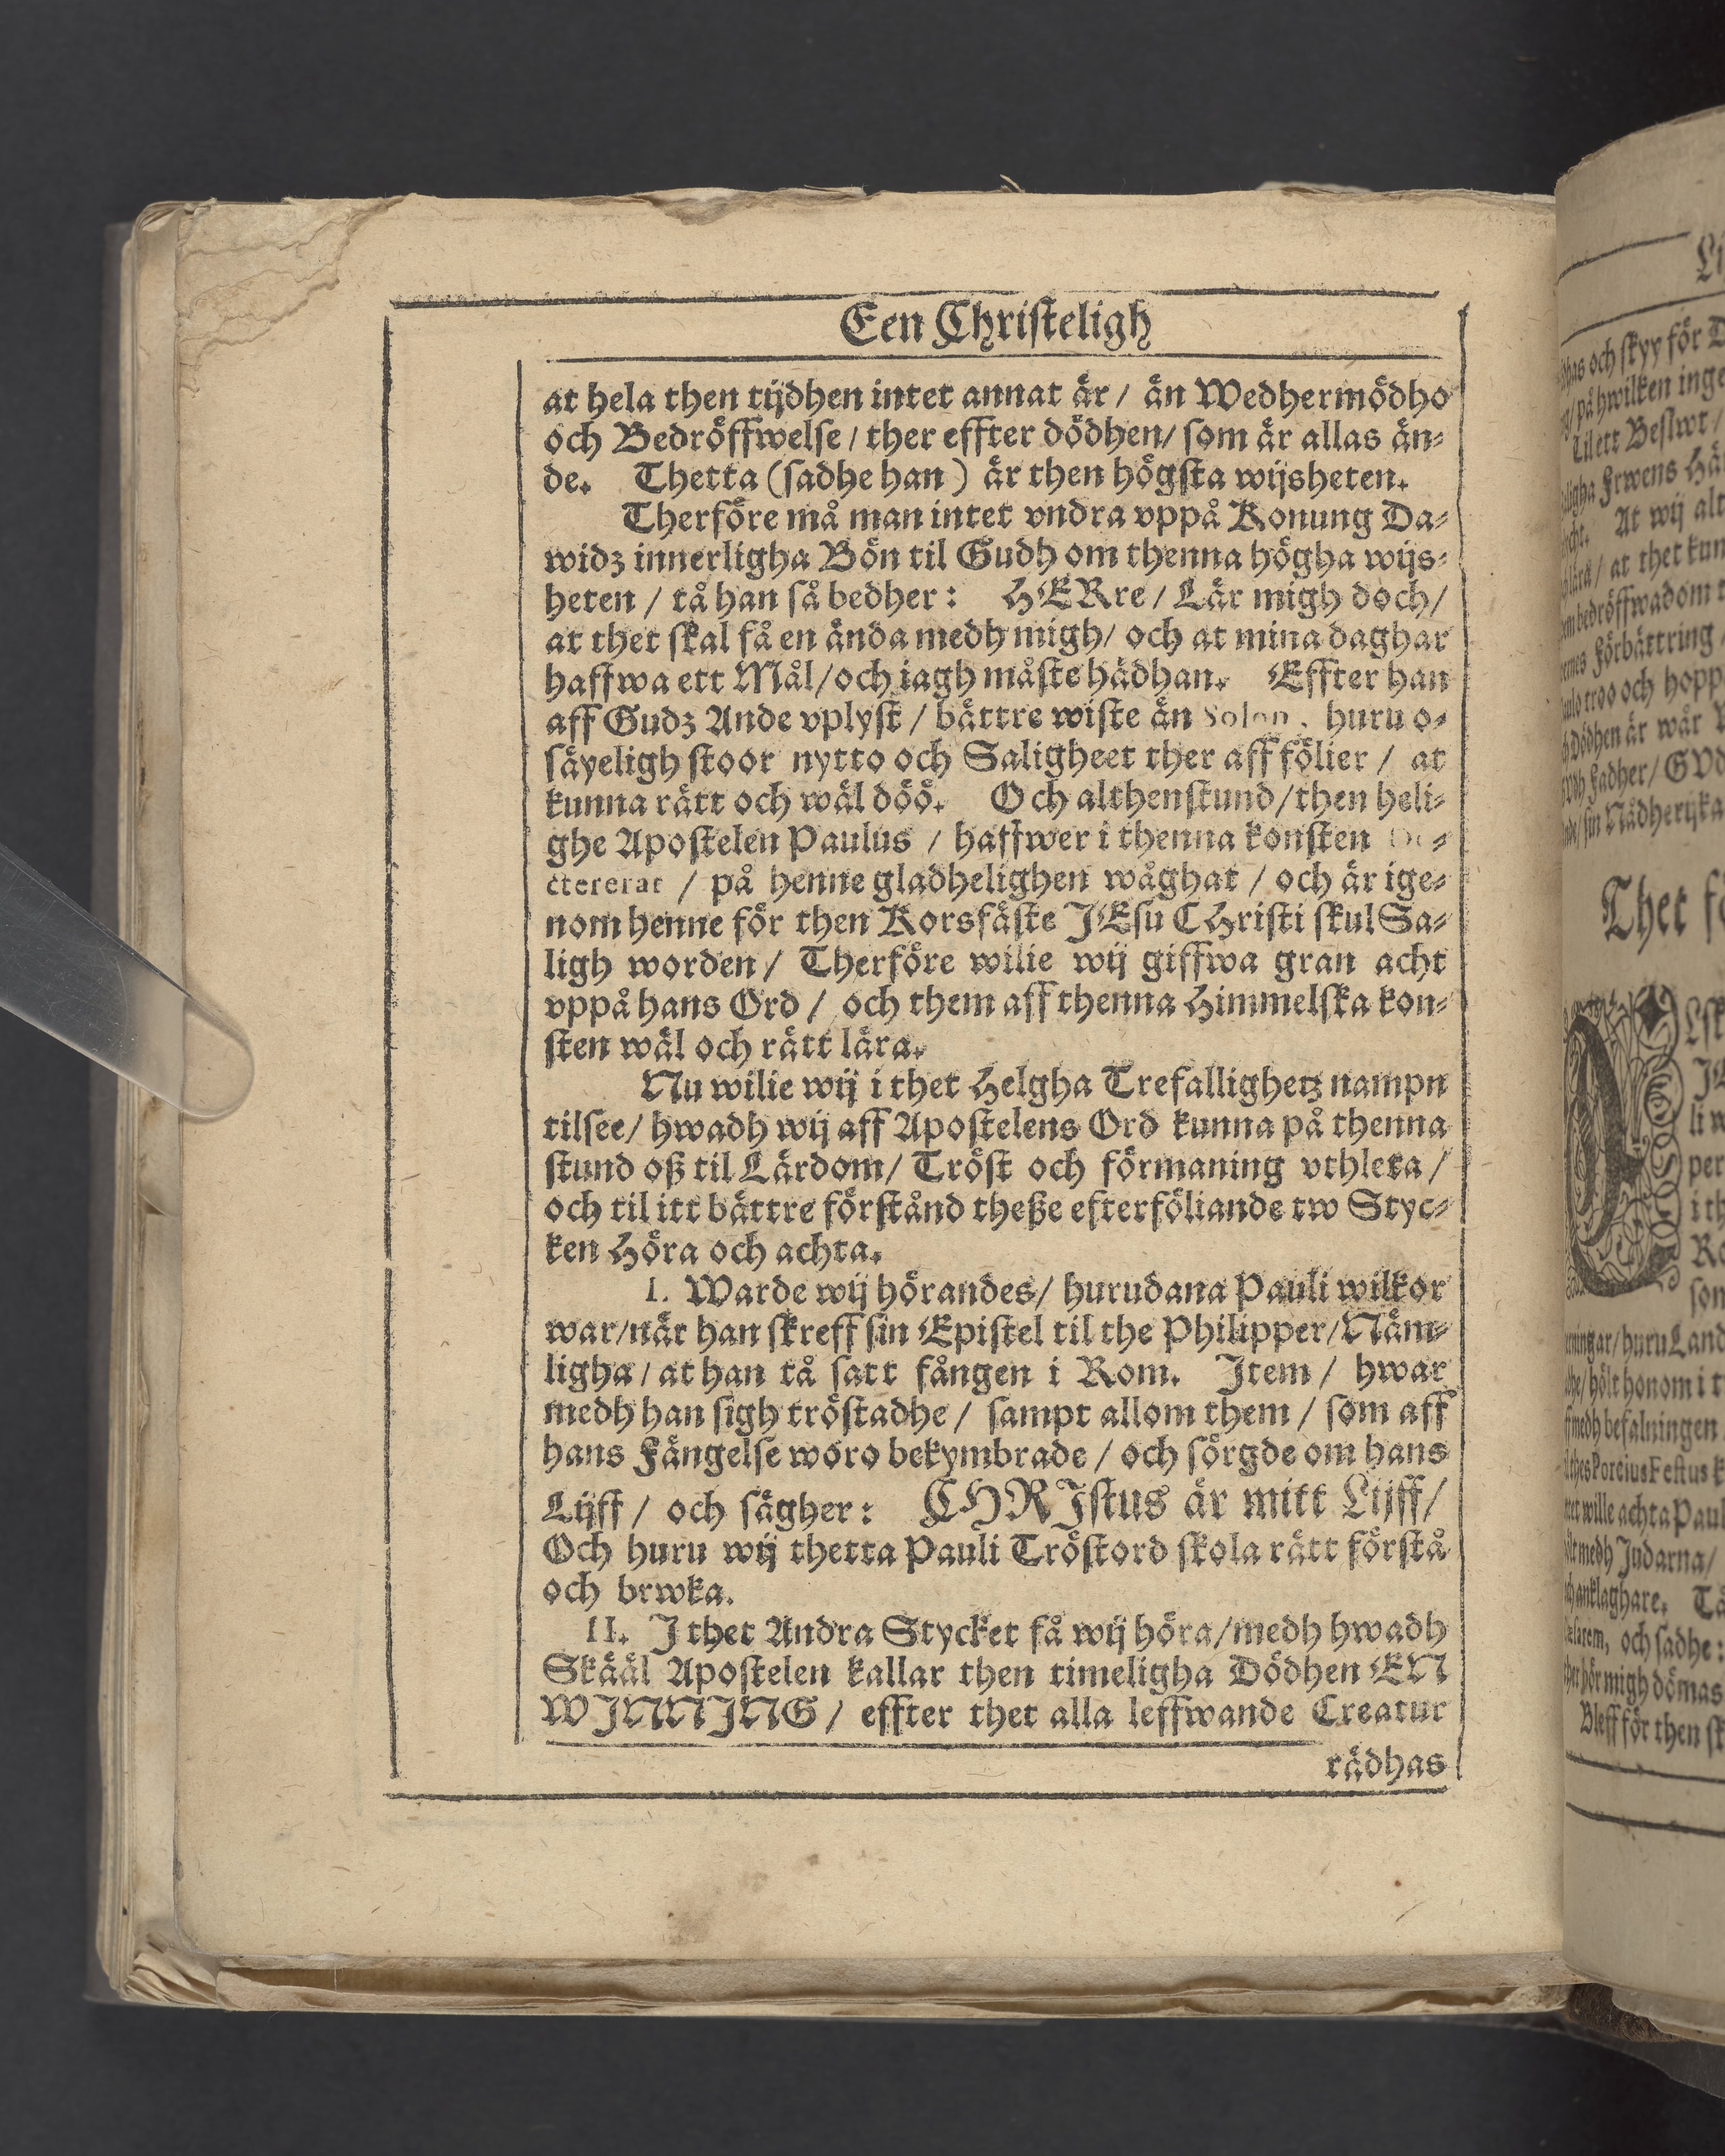 Een Christeligh
at hela then tijdhen intet annat är / än Wedhermödho
och Bedröffwelse / ther effter dödhen / som är allas än-
de. Thetta (sadhe han) är then högsta wijsheten.
Therföre må man intet vndra vppå Konung Da-
widz innerligha Bön til Gudh om thenna högha wijs-
heten / tå han så bedher: HERre / Lär migh doch /
at thet skal få en ända medh migh / och at mina daghar
haffwa ett Mål / och iagh måste hädhan. Effter han
aff Gudz Ande vplyst / bättre wiste än Solon, huru o-
säyeligh stoor nytto och Saligheet ther aff fölier / at
kunna rätt och wäl döö. Och althenstund / then heli-
ghe Apostelen Paulus / haffwer i thenna konsten
på henne gladhelighen wåghat / och är ige-
nom henne för then Korsfäste JEsu CHristi skul Sa-
ligh worden / Therföre wilie wij giffwa gran acht
vppå hans Ord / och them aff thenna Himmelska kon-
sten wäl och rätt lära.
Nu wilie wij i thet Helgha Trefallighetz nampn
tilsee / hwadh wij aff Apostelens Ord kunna på thenna
stund oß til Lärdom / Tröst och förmaning vthleta /
och til itt bättre förstånd theße efterföliande tw Styc-
ken Höra och achta.
I. Warde wij hörandes / hurudana Pauli wilkor
war / när han skreff sin Epistel til the Philipper / Näm-
ligha / at han tå satt fången i Rom. Item / hwar
medh han sigh tröstadhe / sampt allom them / som aff
hans Fängelse woro bekymbrade / och sörgde om hans
Lijff / och sägher: CHRIstus är mitt Lijff /
Och huru wij thetta Pauli Tröstord skola rätt förstå
och brwka.
II. I thet Andra Stycket få wij höra / medh hwadh
Skääl Apostelen kallar then timeligha Dödhen EN
WINNING / effter thet alla leffwande Creatur
rädhas